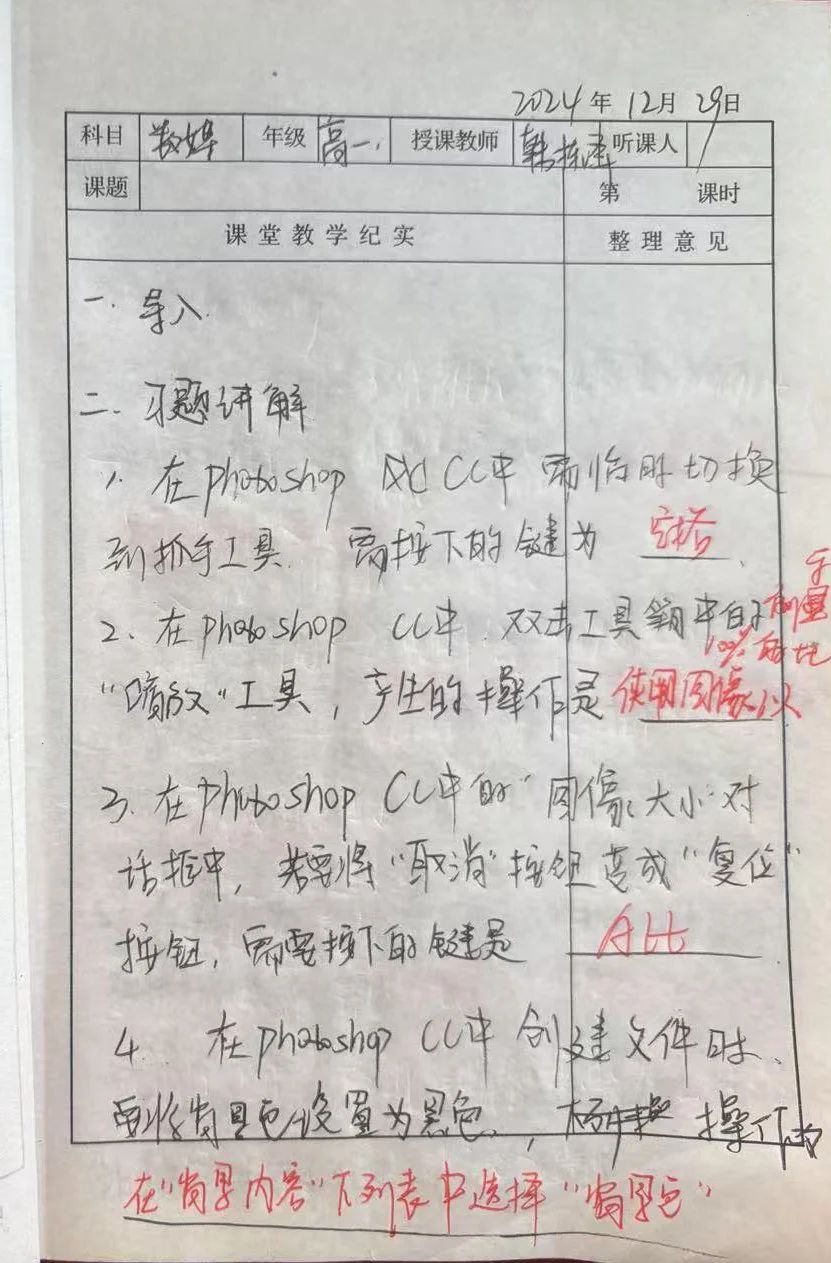 2024年12月29日
科目 数媒 年级 高一 授课教师 韩 听课人
课题 第 课时
课堂教学纪实 整理意见
一. 导入.
二. 习题讲解
1. 在photoshop CC中 需临时切换
到抓手工具. 需按下的键为 空格.
2. 在photoshop CC中. 双击工具箱中的
100%
"缩放"工具, 产生的操作是 使用图像以
3. 在photoshop CC中的"图像大小"对
话框中, 若要将"取消"按钮变成"复位"
按钮, 需要按下的键是 Alt
4. 在photoshop CC中 创建文件时、
要将背景色设置为黑色., 操作为
在"背景内容"下列表中选择"背景色"